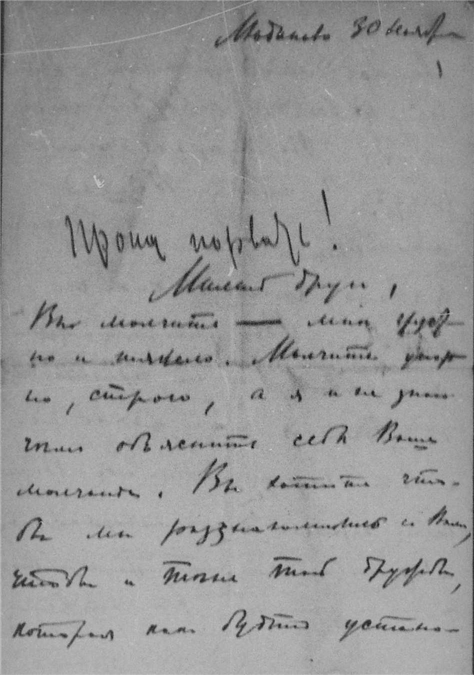 30
Прошу порвать!
Милый друг,
Вы молчите — мне груст
но и тяжело. Молчите упор
но, строго, а я и не знаю
чем объяснить себѣ Ваше
молчанье. Вы хотите что-
бы мы раззнакомились с Вами,
чтобы и той дружбы,
которая как будто устано-